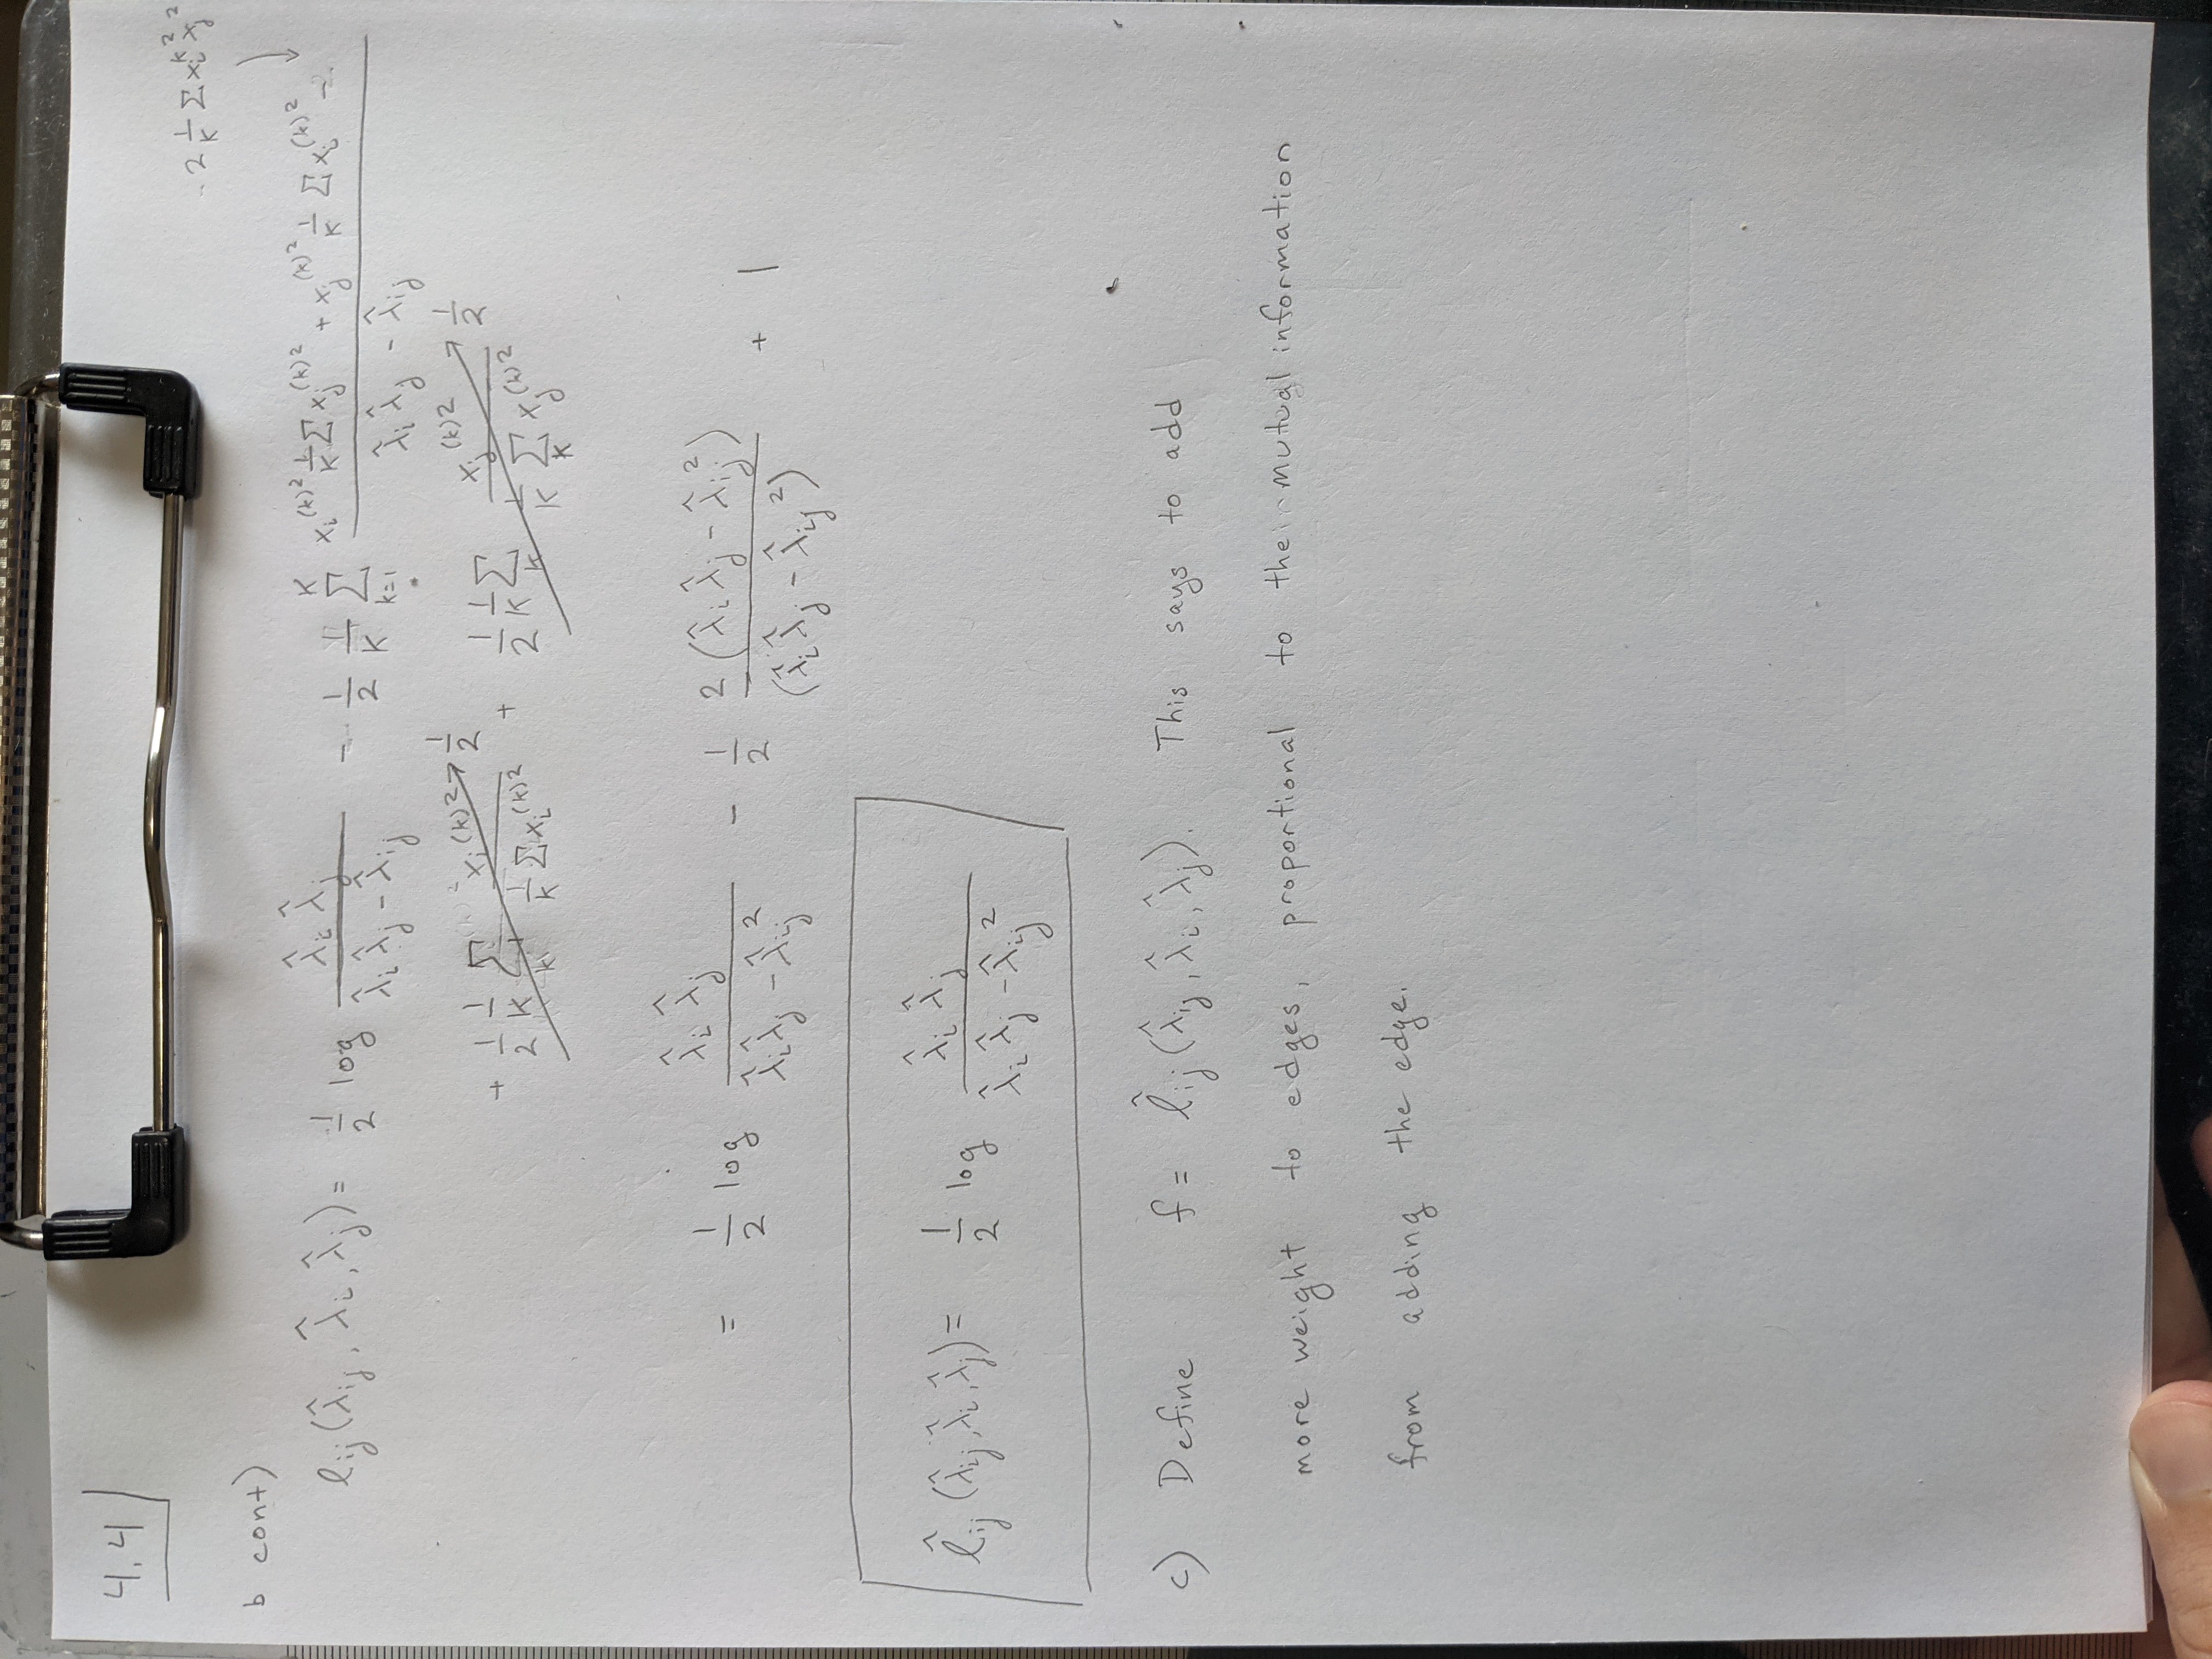 4.4
- 2 1/K Σ x_i^k² x_j²
b cont)
ℓ_ij(λ̂_ij, λ̂_i, λ̂_j) = 1/2 log (λ̂_i λ̂_j)/(λ̂_i λ̂_j - λ̂_ij) - 1/2 1/K Σ_{k=1}^{K} (x_i^(k)2 1/K Σ x_j^(k)2 + x_j^(k)2 1/K Σ x_i^(k)2 -)/(λ̂_i λ̂_j - λ̂_ij)
+ 1/2 1/K Σ_k x_i^(k)2/(1/K Σ x_i^(k)2) → 1/2 + 1/2 1/K Σ_k x_j^(k)2/(1/K Σ_k x_j^(k)2) → 1/2
= 1/2 log (λ̂_i λ̂_j)/(λ̂_i λ̂_j - λ̂_ij²) - 1/2 2(λ̂_i λ̂_j - λ̂_ij²)/(λ̂_i λ̂_j - λ̂_ij²) + 1
ℓ̂_ij(λ̂_ij, λ̂_i, λ̂_j) = 1/2 log (λ̂_i λ̂_j)/(λ̂_i λ̂_j - λ̂_ij²)
c) Define f = ℓ̂_ij(λ̂_ij, λ̂_i, λ̂_j). This says to add
more weight to edges, proportional to their mutual information
from adding the edge.